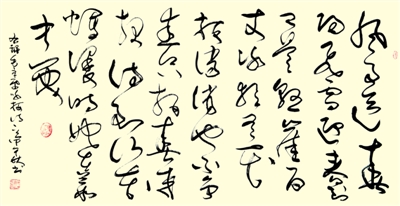 风雨送春
归飞雪迎春到
已是悬崖百
丈冰犹有花
枝俏俏也不争
春只把春来
报待到山花
烂漫时她在丛
中笑